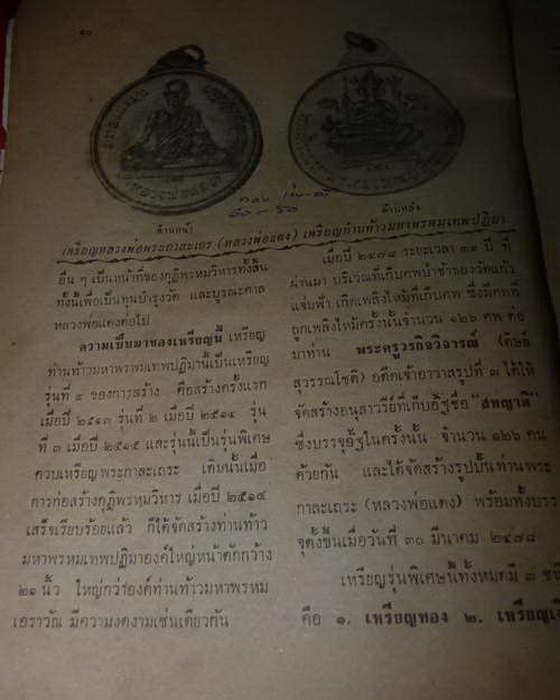 ๑๐
ด้านหน้า
ด้านหลัง
เหรียญหลวงพ่อพระกาละเถร (หลวงพ่อแดง) เหรียญท่านท้าวมหาพรหมเทพปฏิมา
อื่น ๆ เป็นหน้าที่ของกุฏิพรหมวิหารทั้งสิ้น
ทั้งนี้เพื่อเป็นทุนบำรุงวัด และบูรณะศาล
หลวงพ่อแดงต่อไป
ความเป็นมาของเหรียญนี้ เหรียญ
ท่านท้าวมหาพรหมเทพปฏิมานี้เป็นเหรียญ
รุ่นที่ ๔ ของการสร้าง คือสร้างครั้งแรก
เมื่อปี ๒๕๑๓ รุ่นที่ ๒ เมื่อปี ๒๕๑๔ รุ่น
ที่ ๓ เมื่อปี ๒๕๑๕ และรุ่นนี้เป็นรุ่นพิเศษ
ควบเหรียญพระกาละเถระ เดิมนั้นเมื่อ
การก่อสร้างกุฏิพรหมวิหาร เมื่อปี ๒๕๑๔
เสร็จเรียบร้อยแล้ว ก็ได้จัดสร้างท่านท้าว
มหาพรหมเทพปฏิมาองค์ใหญ่หน้าตักกว้าง
๒๑ นิ้ว ใหญ่กว่าองค์ท่านท้าวมหาพรหม
เอราวัณ มีความงดงามเช่นเดียวกัน
เมื่อปี ๒๔๗๘ ระยะเวลา ๓๙ ปี ที่
ผ่านมา บริเวณที่เก็บศพป่าช้าของวัดแก้ว
แจ่มฟ้า เกิดเพลิงไหม้ที่เก็บศพ ซึ่งมีศพที่
ถูกเพลิงไหม้ครั้งนั้นจำนวน ๑๒๖ ศพ ต่อ
มาท่าน พระครูวรกิจวิจารณ์ (ดิษฐ์
สุวรรณโชติ) อดีตเจ้าอาวาสรูปที่ ๓ ได้ให้
จัดสร้างอนุสาวรีย์ที่เก็บอัฐิชื่อ "สหญาติ"
ซึ่งบรรจุอัฐิในครั้งนั้น จำนวน ๑๒๖ คน
ด้วยกัน และได้จัดสร้างรูปปั้นท่านพระ
กาละเถระ (หลวงพ่อแดง) พร้อมทั้งบรร
จุตั้งขึ้นเมื่อวันที่ ๓๐ มีนาคม ๒๔๗๘
เหรียญรุ่นพิเศษนี้ทั้งหมดมี ๓ ชนิ
คือ ๑. เหรียญทอง ๒. เหรียญเงิ